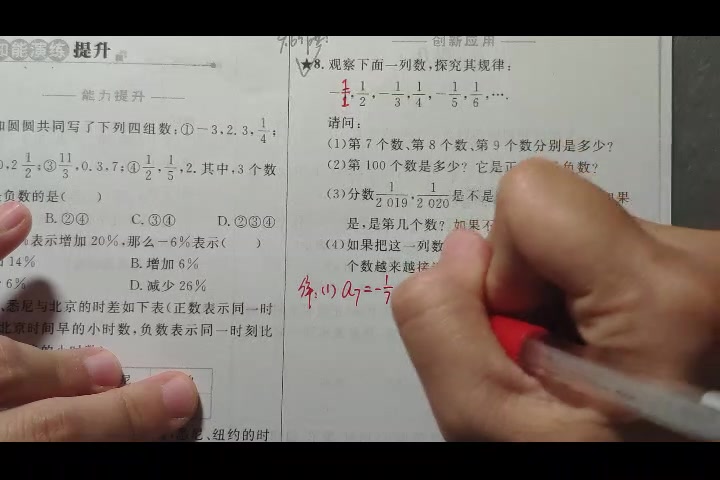 知能演练 提升
能力提升
和圆圆共同写了下列四组数:①-3,2.3,1/4;
0,2 1/2;③11/3,0.3,7;④1/2,1/5,2.其中,3个数
负数的是( )
B.②④ C.③④ D.②③④
%表示增加20%,那么-6%表示( )
14% B.增加6%
6% D.减少26%
悉尼与北京的时差如下表(正数表示同一时
北京时间早的小时数,负数表示同一时刻比
悉尼、纽约的时
创新应用
★8.观察下面一列数,探究其规律:
-1/1,1/2,-1/3,1/4,-1/5,1/6,….
请问:
(1)第7个数、第8个数、第9个数分别是多少?
(2)第100个数是多少?它是正 负数?
(3)分数1/2 019,1/2 020是不是 如果
是,是第几个数?如果不
(4)如果把这一列数
个数越来越接
解:(1) a7=-1/7